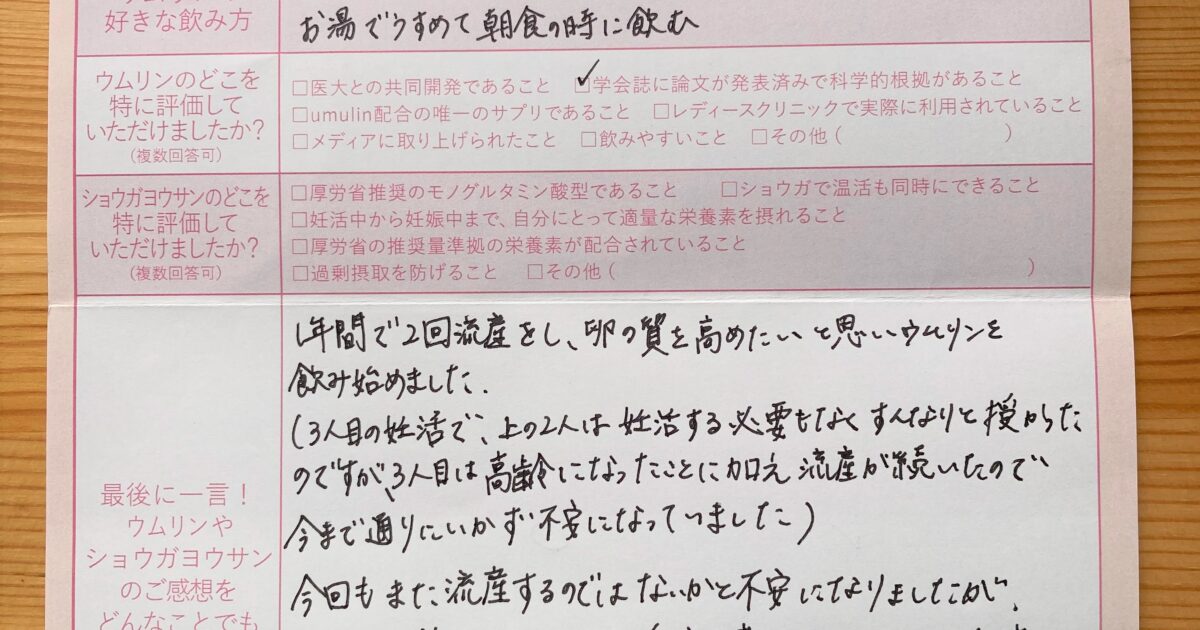 好きな飲み方
お湯でうすめて朝食の時に飲む
ウムリンのどこを
特に評価して
いただけましたか？
（複数回答可）
□医大との共同開発であること ☑学会誌に論文が発表済みで科学的根拠があること
□umulin配合の唯一のサプリであること □レディースクリニックで実際に利用されていること
□メディアに取り上げられたこと □飲みやすいこと □その他（ ）
ショウガヨウサンのどこを
特に評価して
いただけましたか？
（複数回答可）
□厚労省推奨のモノグルタミン酸型であること □ショウガで温活も同時にできること
□妊活中から妊娠中まで、自分にとって適量な栄養素を摂れること
□厚労省の推奨量準拠の栄養素が配合されていること
□過剰摂取を防げること □その他（ ）
最後に一言！
ウムリンや
ショウガヨウサン
のご感想を
どんなことでも
1年間で2回流産をし、卵の質を高めたいと思いウムリンを
飲み始めました．
（3人目の妊活で、上の2人は妊活する必要もなくすんなりと授かった
のですが、3人目は高齢になったことに加え流産が続いたので
今まで通りにいかず不安になっていました）
今回もまた流産するのではないかと不安になりましたが、